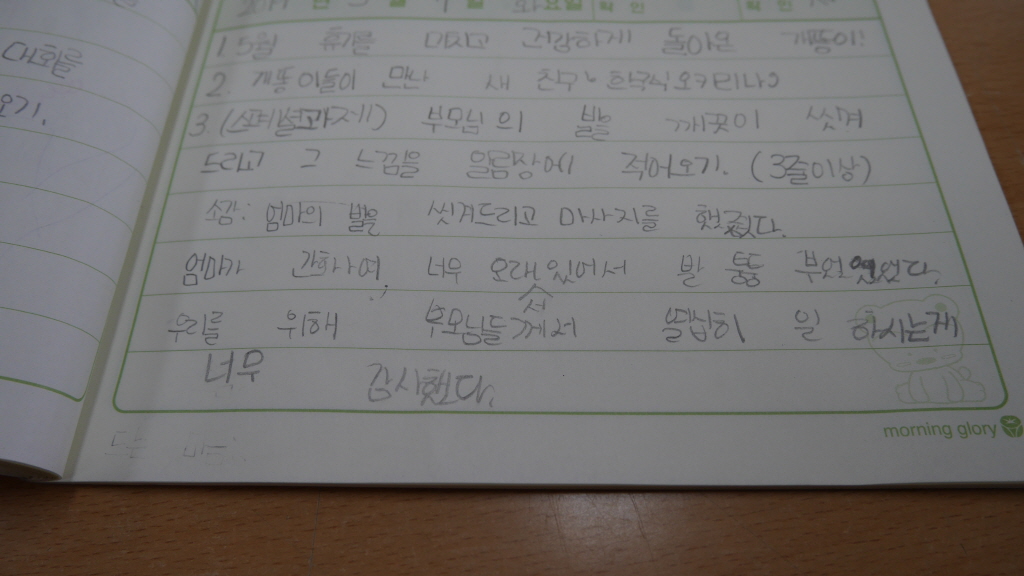 대회를
오기.
월 일 화요일 확인 확인
1. 5월 휴가를 마치고 건강하게 돌아온 개똥이!
2. 개똥이들이 만난 새 친구
3. (스페셜과제!) 부모님의 발을 깨끗이 씻겨
드리고 그 느낌을 알림장에 적어오기. (3줄이상)
소감: 엄마의 발을 씻겨드리고 마사지를 했다.
엄마가 너무 오래 서있어서 발 퉁퉁
우리를 위해 부모님들께서 열심히 일 하시는게
너무 감사했다.
morning glory